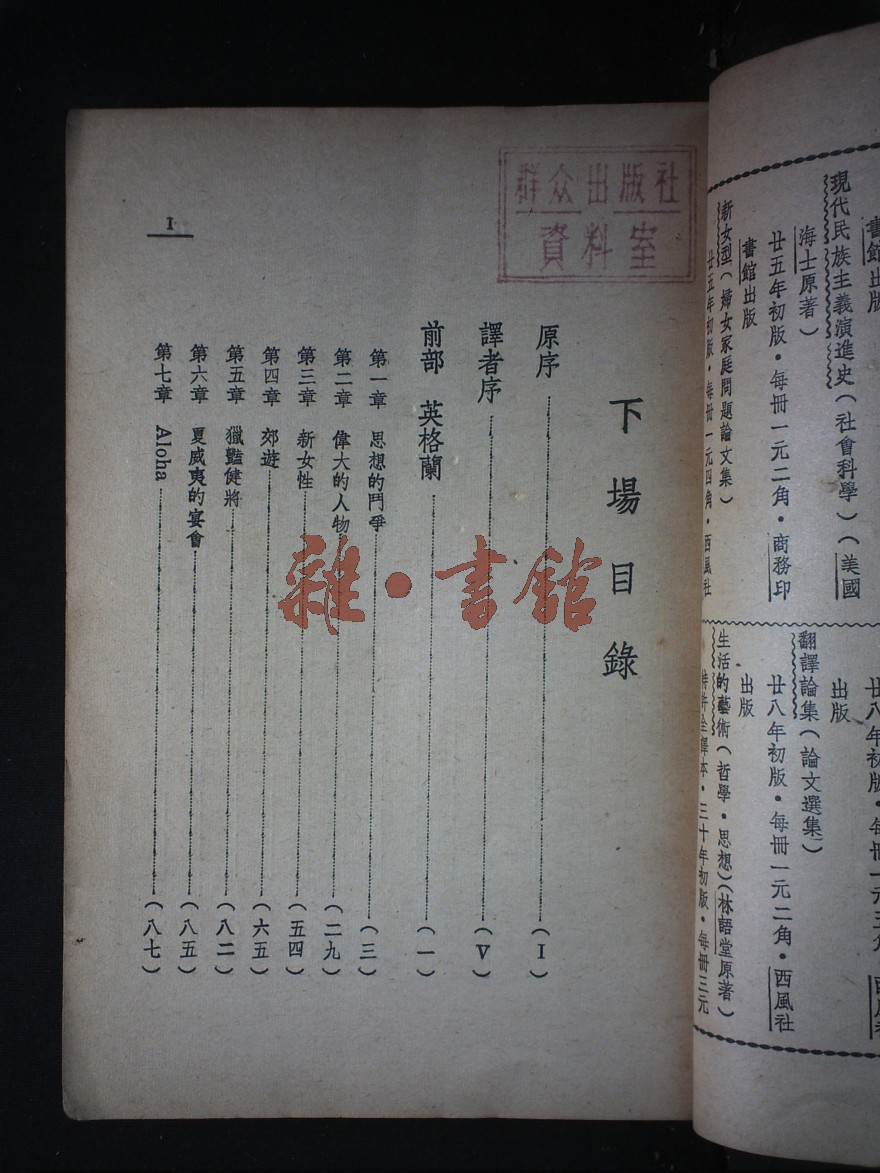 群众出版社
資料室
下場目錄
原序(I)
譯者序(V)
前部 英格蘭(一)
第一章 思想的鬥爭(三)
第二章 偉大的人物(二九)
第三章 新女性(五四)
第四章 郊遊(六五)
第五章 獵豔健將(八二)
第六章 夏威夷的宴會(八五)
第七章 Aloha(八七)
I
雜·書館
書館出版
現代民族主義演進史(社會科學)(美國
海士原著)
廿五年初版·每冊一元二角·商務印
書館出版
新女型(婦女家庭問題論文集)
廿五年初版·每冊一元四角·西風社
廿八年初版·每冊一元三角·西風社
出版
翻譯論集(論文選集)
廿八年初版·每冊一元二角·西風社
出版
生活的藝術(哲學·思想)(林語堂原著)
特許全譯本·三十年初版·每冊三元